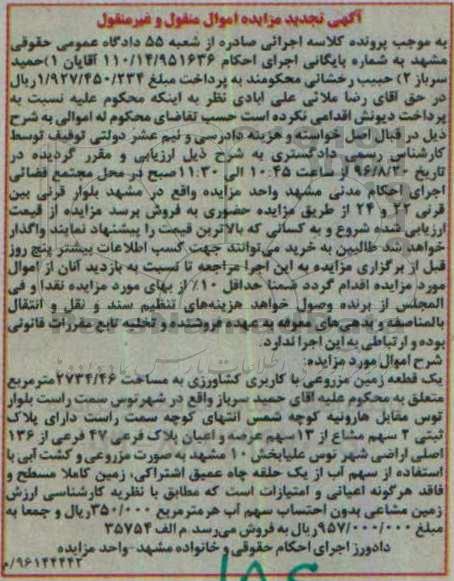 آگهی تجدید مزایده اموال منقول و غیرمنقول
به موجب پرونده کلاسه اجرائی صادره از شعبه ۵۵ دادگاه عمومی حقوقی
مشهد به شماره بایگانی اجرای احکام ۱۱۰/۱۴/۹۵۱۶۳۶ آقایان ۱)حمید
سرباز ۲) حبیب رخشانی محکومند به پرداخت مبلغ ۱/۹۲۷/۴۵۰/۲۳۴ریال
در حق آقای رضا ملائی علی ابادی نظر به اینکه محکوم علیه نسبت به
پرداخت دیونش اقدامی نکرده است حسب تقاضای محکوم له اموالی به شرح
ذیل در قبال اصل خواسته و هزینه دادرسی و نیم عشر دولتی توقیف توسط
کارشناس رسمی دادگستری به شرح ذیل ارزیابی و مقرر گردیده در
تاریخ ۹۶/۸/۲۰ از ساعت ۱۰:۴۵ الی ۱۱:۳۰صبح در محل مجتمع قضائی
اجرای احکام مدنی مشهد واحد مزایده واقع در مشهد بلوار قرنی بین
قرنی ۲۲ و ۲۴ از طریق مزایده حضوری به فروش برسد مزایده از قیمت
ارزیابی شده شروع و به کسانی که بالاترین قیمت را پیشنهاد نمایند واگذار
خواهد شد طالبین به خرید می‌توانند جهت کسب اطلاعات بیشتر پنج روز
قبل از برگزاری مزایده به این اجرا مراجعه تا نسبت به بازدید آنان از اموال
مورد مزایده اقدام گردد ضمنا حداقل ۱۰٪ از بهای مورد مزایده نقدا و فی
المجلس از برنده وصول خواهد هزینه‌های تنظیم سند و نقل و انتقال
بالمناصفه و بدهی‌های معوقه به عهده فروشنده و تخلیه تابع مقررات قانونی
بوده و ارتباطی به این اجرا ندارد.
شرح اموال مورد مزایده:
یک قطعه زمین مزروعی با کاربری کشاورزی به مساحت ۲۷۳۴/۴۶مترمربع
متعلق به محکوم علیه اقای حمید سرباز واقع در شهر توس سمت راست بلوار
توس مقابل هارونیه کوچه شمس انتهای کوچه سمت راست دارای پلاک
ثبتی ۲ سهم مشاع از ۱۳ سهم عرصه و اعیان پلاک فرعی ۴۷ فرعی از ۱۳۶
اصلی اراضی شهر توس علیابخش ۱۰ مشهد به صورت مزروعی و کشت آبی با
استفاده از سهم آب از یک حلقه چاه عمیق اشتراکی، زمین کاملا مسطح و
فاقد هرگونه اعیانی و امتیازات است که مطابق با نظریه کارشناسی ارزش
زمین مشاعی بدون احتساب سهم آب هرمترمربع ۳۵۰/۰۰۰ریال و جمعا به
مبلغ ۹۵۷/۰۰۰/۰۰۰ریال به فروش می‌رسد. م الف ۳۵۷۵۴
دادورز اجرای احکام حقوقی و خانواده مشهد-واحد مزایده
/۹۶۱۴۴۴۴۲م